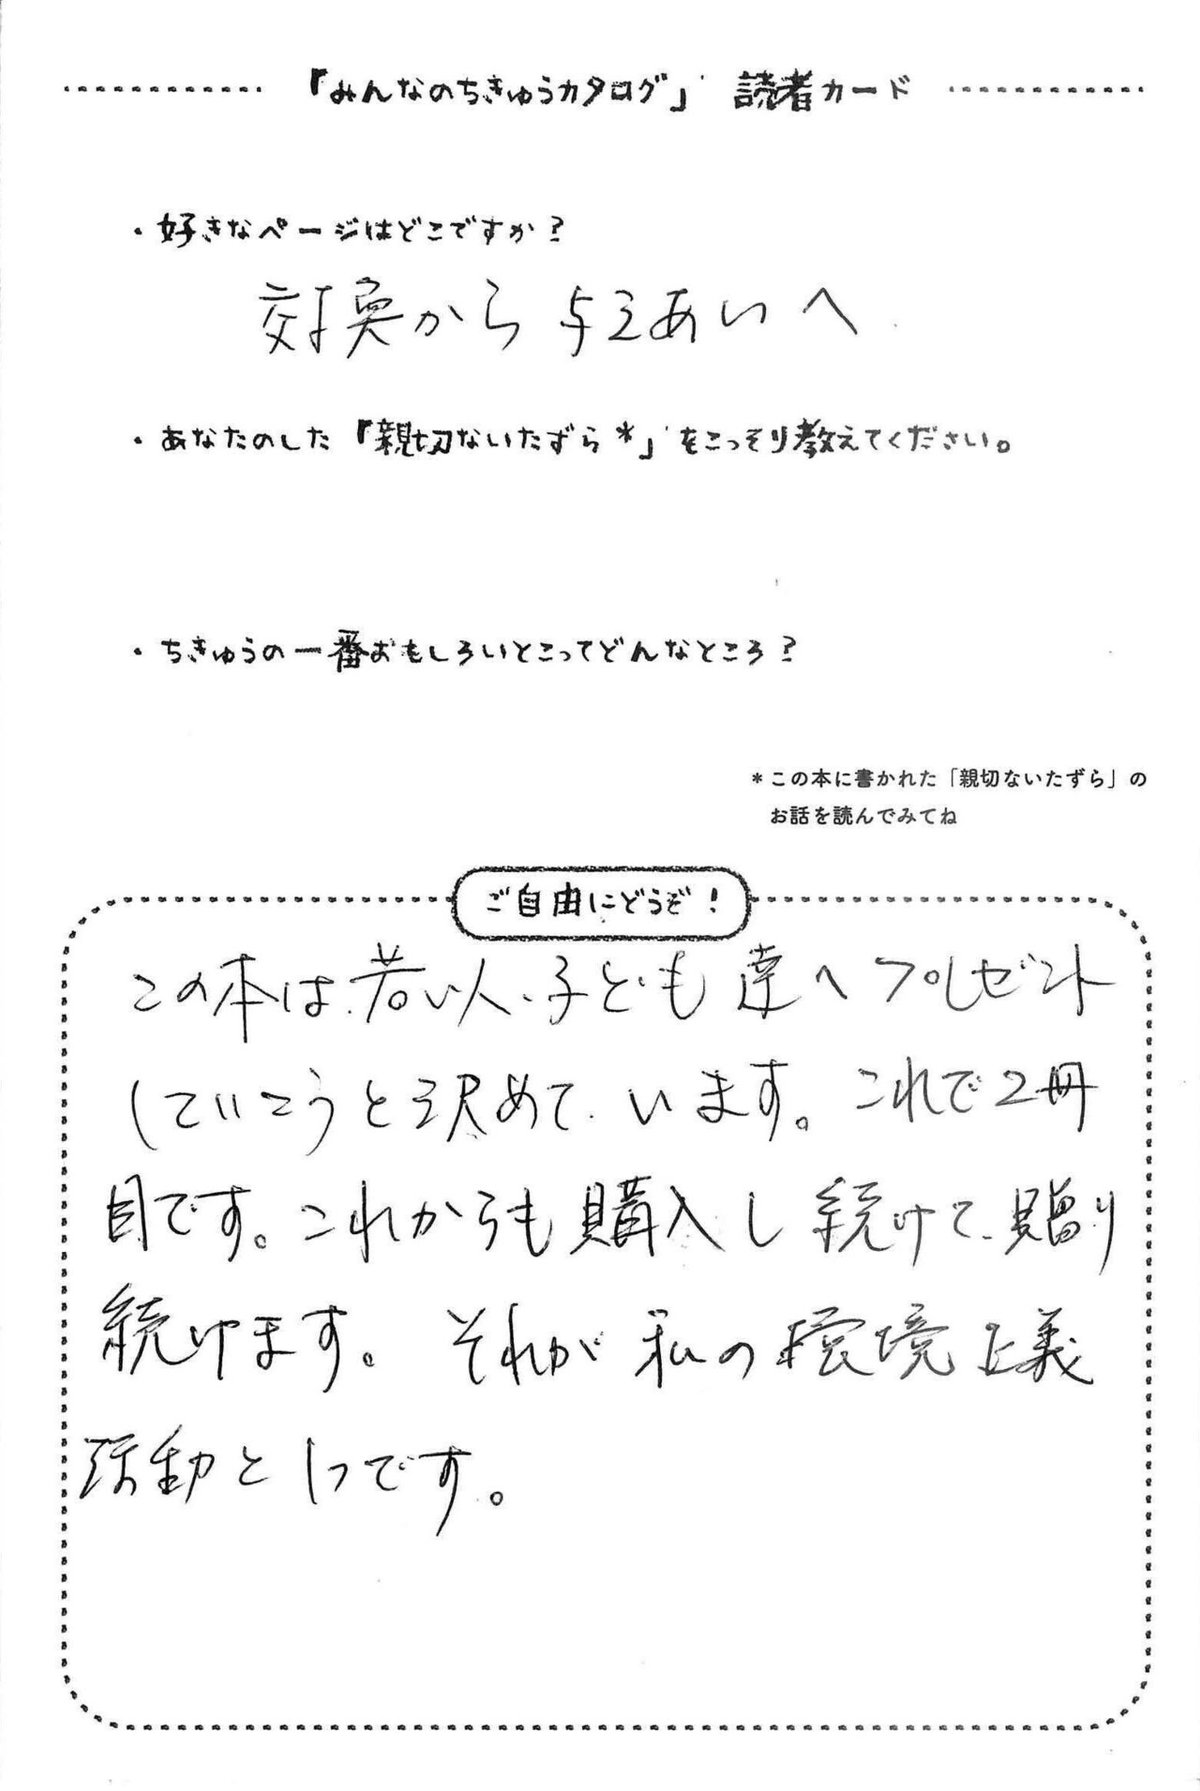 『みんなのちきゅうカタログ』 読者カード
・好きなページはどこですか?
交換から与えあいへ
・あなたのした『親切ないたずら*』をこっそり教えてください。
・ちきゅうの一番おもしろいとこってどんなところ?
*この本に書かれた「親切ないたずら」の
お話を読んでみてね
ご自由にどうぞ!
この本は若い人、子ども達へプレゼント
していこうと決めています。これで2冊
目です。これからも購入し続けて、贈り
続けます。それが私の環境正義
活動と1つです。